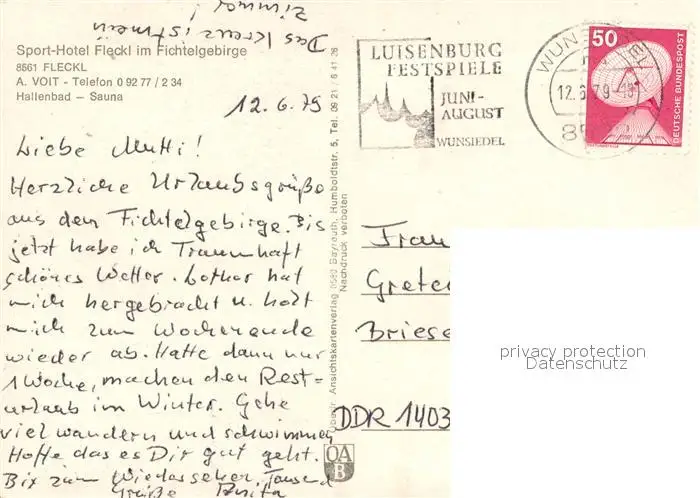 Das Kreuz ist mein
Zimmer!
Sport-Hotel Fleckl im Fichtelgebirge
8561 FLECKL
A. VOIT - Telefon 0 92 77 / 2 34
Hallenbad — Sauna
12.6.79
Liebe Mutti!
Herzliche Urlaubsgrüße
aus dem Fichtelgebirge. Bis
jetzt habe ich Traumhaft
schönes Wetter. Lothar hat
mich hergebracht u. holt
mich zum Wochenende
wieder ab. Hatte dann nur
1 Woche, machen den Rest=
urlaub im Winter. Gehe
viel wandern und schwimmen
Hoffe das es Dir gut geht.
Bix zum Wiedersehen, Tausend
Grüße Anita
Oberfr. Ansichtskartenverlag 8580 Bayreuth, Humboldtstr. 5, Tel. 09 21 / 6 41 26
Nachdruck verboten
OA
B
LUISENBURG
FESTSPIELE
JUNI-
AUGUST
WUNSIEDEL
WUNSIEDEL
12.6.79-15
85
50
DEUTSCHE BUNDESPOST
Frau
Grete
Briese
DDR 1403
privacy protection
Datenschutz